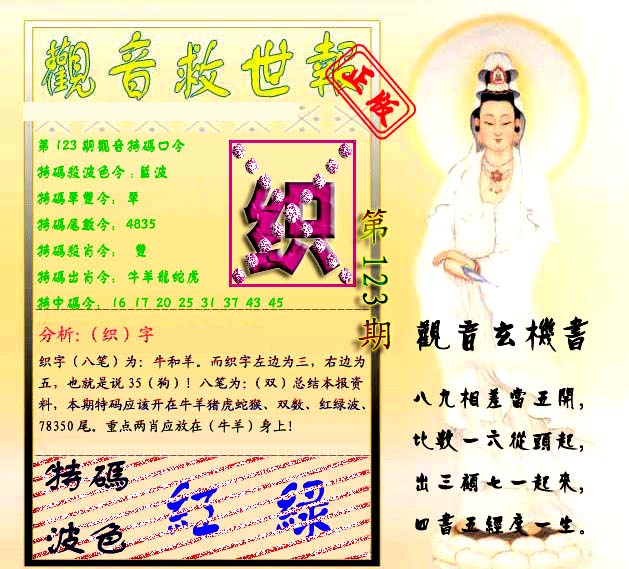 觀音救世報
正版
第 123 期觀音特碼口令
特碼殺波色令：藍波
特碼單雙令： 單
特碼尾數令： 4835
特碼殺肖令： 雙
特碼出肖令： 牛羊龍蛇虎
特中碼令： 16 17 20 25 31 37 43 45
织
第 123 期
分析：（织）字
织字（八笔）为：牛和羊。而织字左边为三，右边为
五，也就是说 35（狗）！八笔为：（双）总结本报资
料，本期特码应该开在牛羊猪虎蛇猴、双数、红绿波、
78350 尾。重点两肖应放在（牛羊）身上！
特碼
波色
紅 綠
觀音玄機書
八九相差當五開，
比數一六從頭起，
出三顧七一起來，
四書五經度一生。